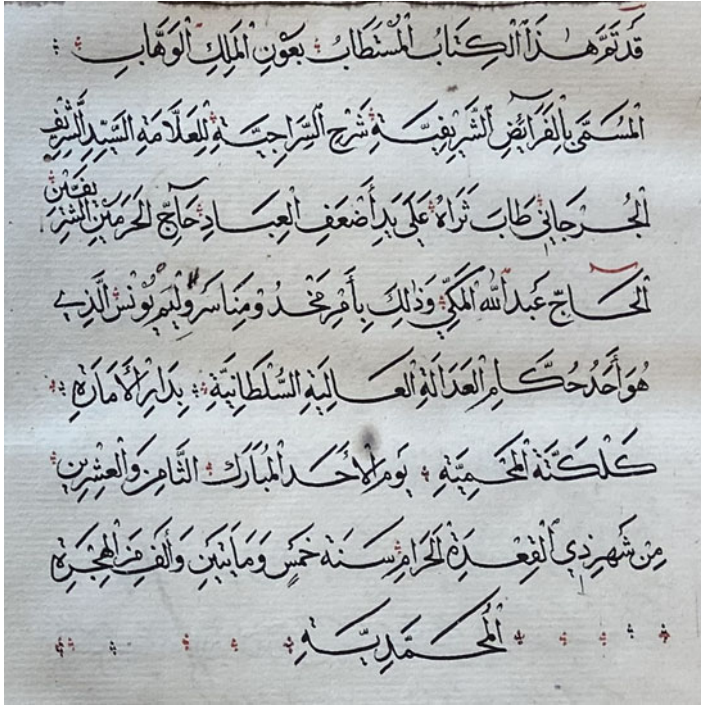 قَدْ تَمَّ هٰذَا الْكِتَابُ الْمُسْتَطَابُ بِعَوْنِ الْمَلِكِ الْوَهَّابِ
الْمُسَمَّى بِالْفَرَائِضِ الشَّرِيفِيَّةِ شَرْحِ السِّرَاجِيَّةِ لِلْعَلَّامَةِ السَّيِّدِ الشَّرِيفِ
الْجُرْجَانِي طَابَ ثَرَاهُ عَلَى يَدِ أَضْعَفِ الْعِبَادِ حَاجِّ الْحَرَمَيْنِ الشَّرِيفَيْنِ
الْحَاجّ عَبْدُ اللّٰه الْمَكِّيّ وَذٰلِكَ بِأَمْرِ مَخْدُومِنَا سَرْوِلْيَمْ يُونَسْ الَّذِي
هُوَ أَحَدُ حُكَّامِ الْعَدَالَةِ الْعَالِيَةِ السُّلْطَانِيَّةِ بِدَارِ الْأَمَارَةِ
كَلْكَتَّةَ الْمَحْمِيَّةِ يَوْمَ الْأَحَدِ الْمُبَارَكِ الثَّامِنِ وَالْعِشْرِينَ
مِنْ شَهْرِ ذِي الْقِعْدَةِ الْحَرَامِ سَنَةَ خَمْسٍ وَمَأَتَيْنِ وَأَلْفٍ مِنَ الْهِجْرَةِ
الْمُحَمَّدِيَّةِ